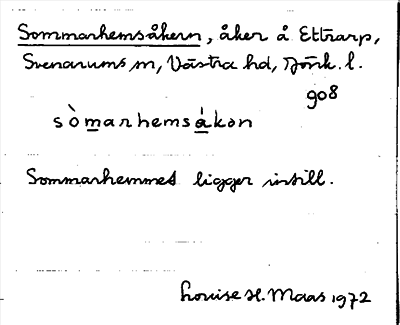 Sommarhemsåkern, åker å Ettrarp,
Svenarums sn, Västra hd, Jönk. l.
908
sòmarhemsákən
Sommarhemmet ligger intill.
Louise H. Maas 1972